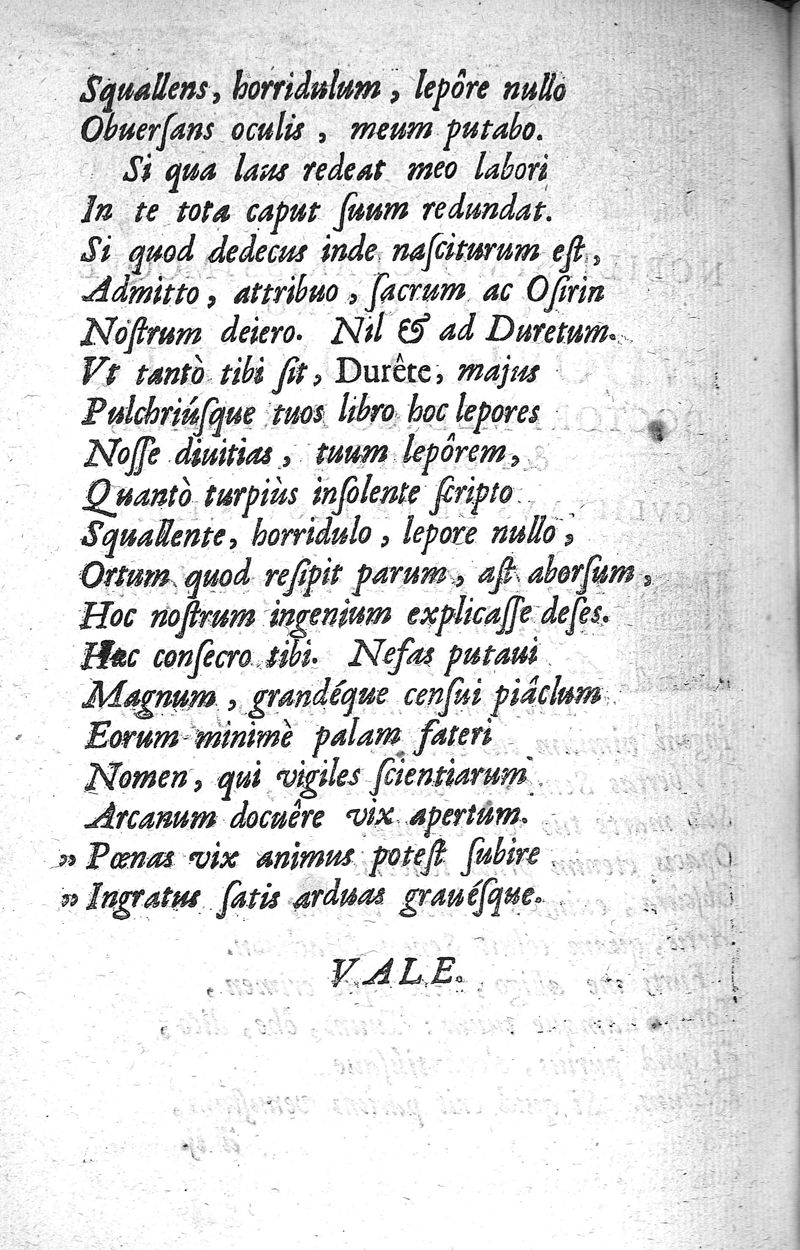 Squallens, horridulum, lepôre nullo
Obuerſans oculis, meum putabo.
Si qua laus redeat meo labori
In te tota caput ſuum redundat.
Si quod dedecus inde naſciturum eſt,
Admitto, attribuo, ſacrum ac Oſirin
Noſtrum deiero. Nil & ad Duretum.
Vt tantò tibi ſit, Durête, majus
Pulchriúſque tuos libro hoc lepores
Noſſe diuitias, tuum lepôrem,
Quantò turpiùs inſolente ſcripto
Squallente, horridulo, lepore nullo,
Ortum quod reſipit parum, aſt aborſum,
Hoc noſtrum ingenium explicaſſe deſes.
Hæc conſecro tibi. Nefas putaui
Magnum, grandéque cenſui piâclum
Eorum minimè palam fateri
Nomen, qui vigiles ſcientiarum
Arcanum docuêre vix apertum.
„ Pœnas vix animus poteſt ſubire
„ Ingratus ſatis arduas grauéſque.
VALE.